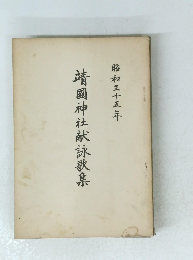 昭和三十五年
靖國神社献詠歌集